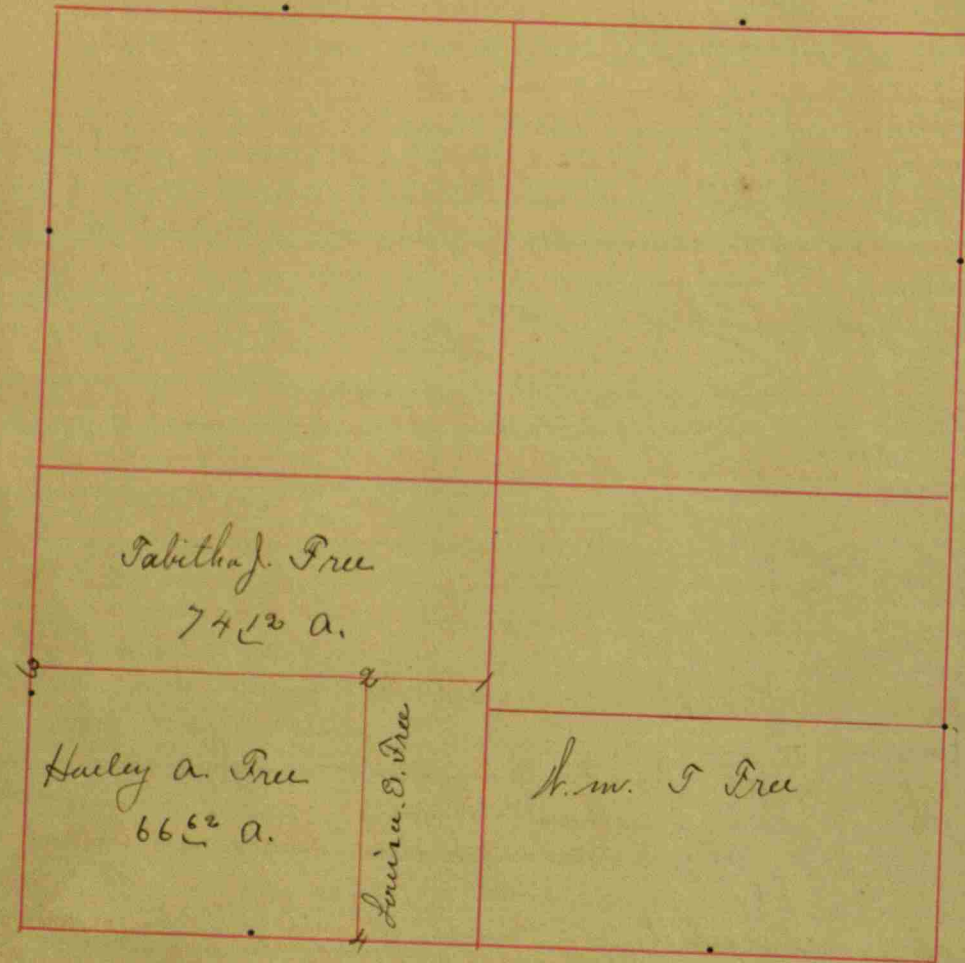 Tabitha J. Free
74 12 a.
3
2
1
Hurley A. Free
66 62 a.
Louisa. D. Free
Wm. T Free
4